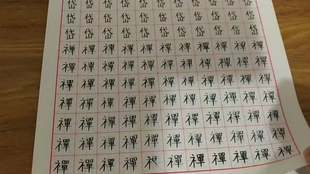 岱岱岱岱岱岱岱岱岱岱
岱岱岱岱岱岱岱岱岱岱
岱岱岱岱岱岱岱岱岱岱
禪禪禪禪禪禪禪禪禪禪
禪禪禪禪禪禪禪禪禪禪
禪禪禪禪禪禪禪禪禪禪
禪禪禪禪禪禪禪禪禪禪
禪禪禪禪禪禪禪禪禪禪
禪禪禪禪禪禪禪禪禪禪
禪禪禪禪禪禪禪禪禪